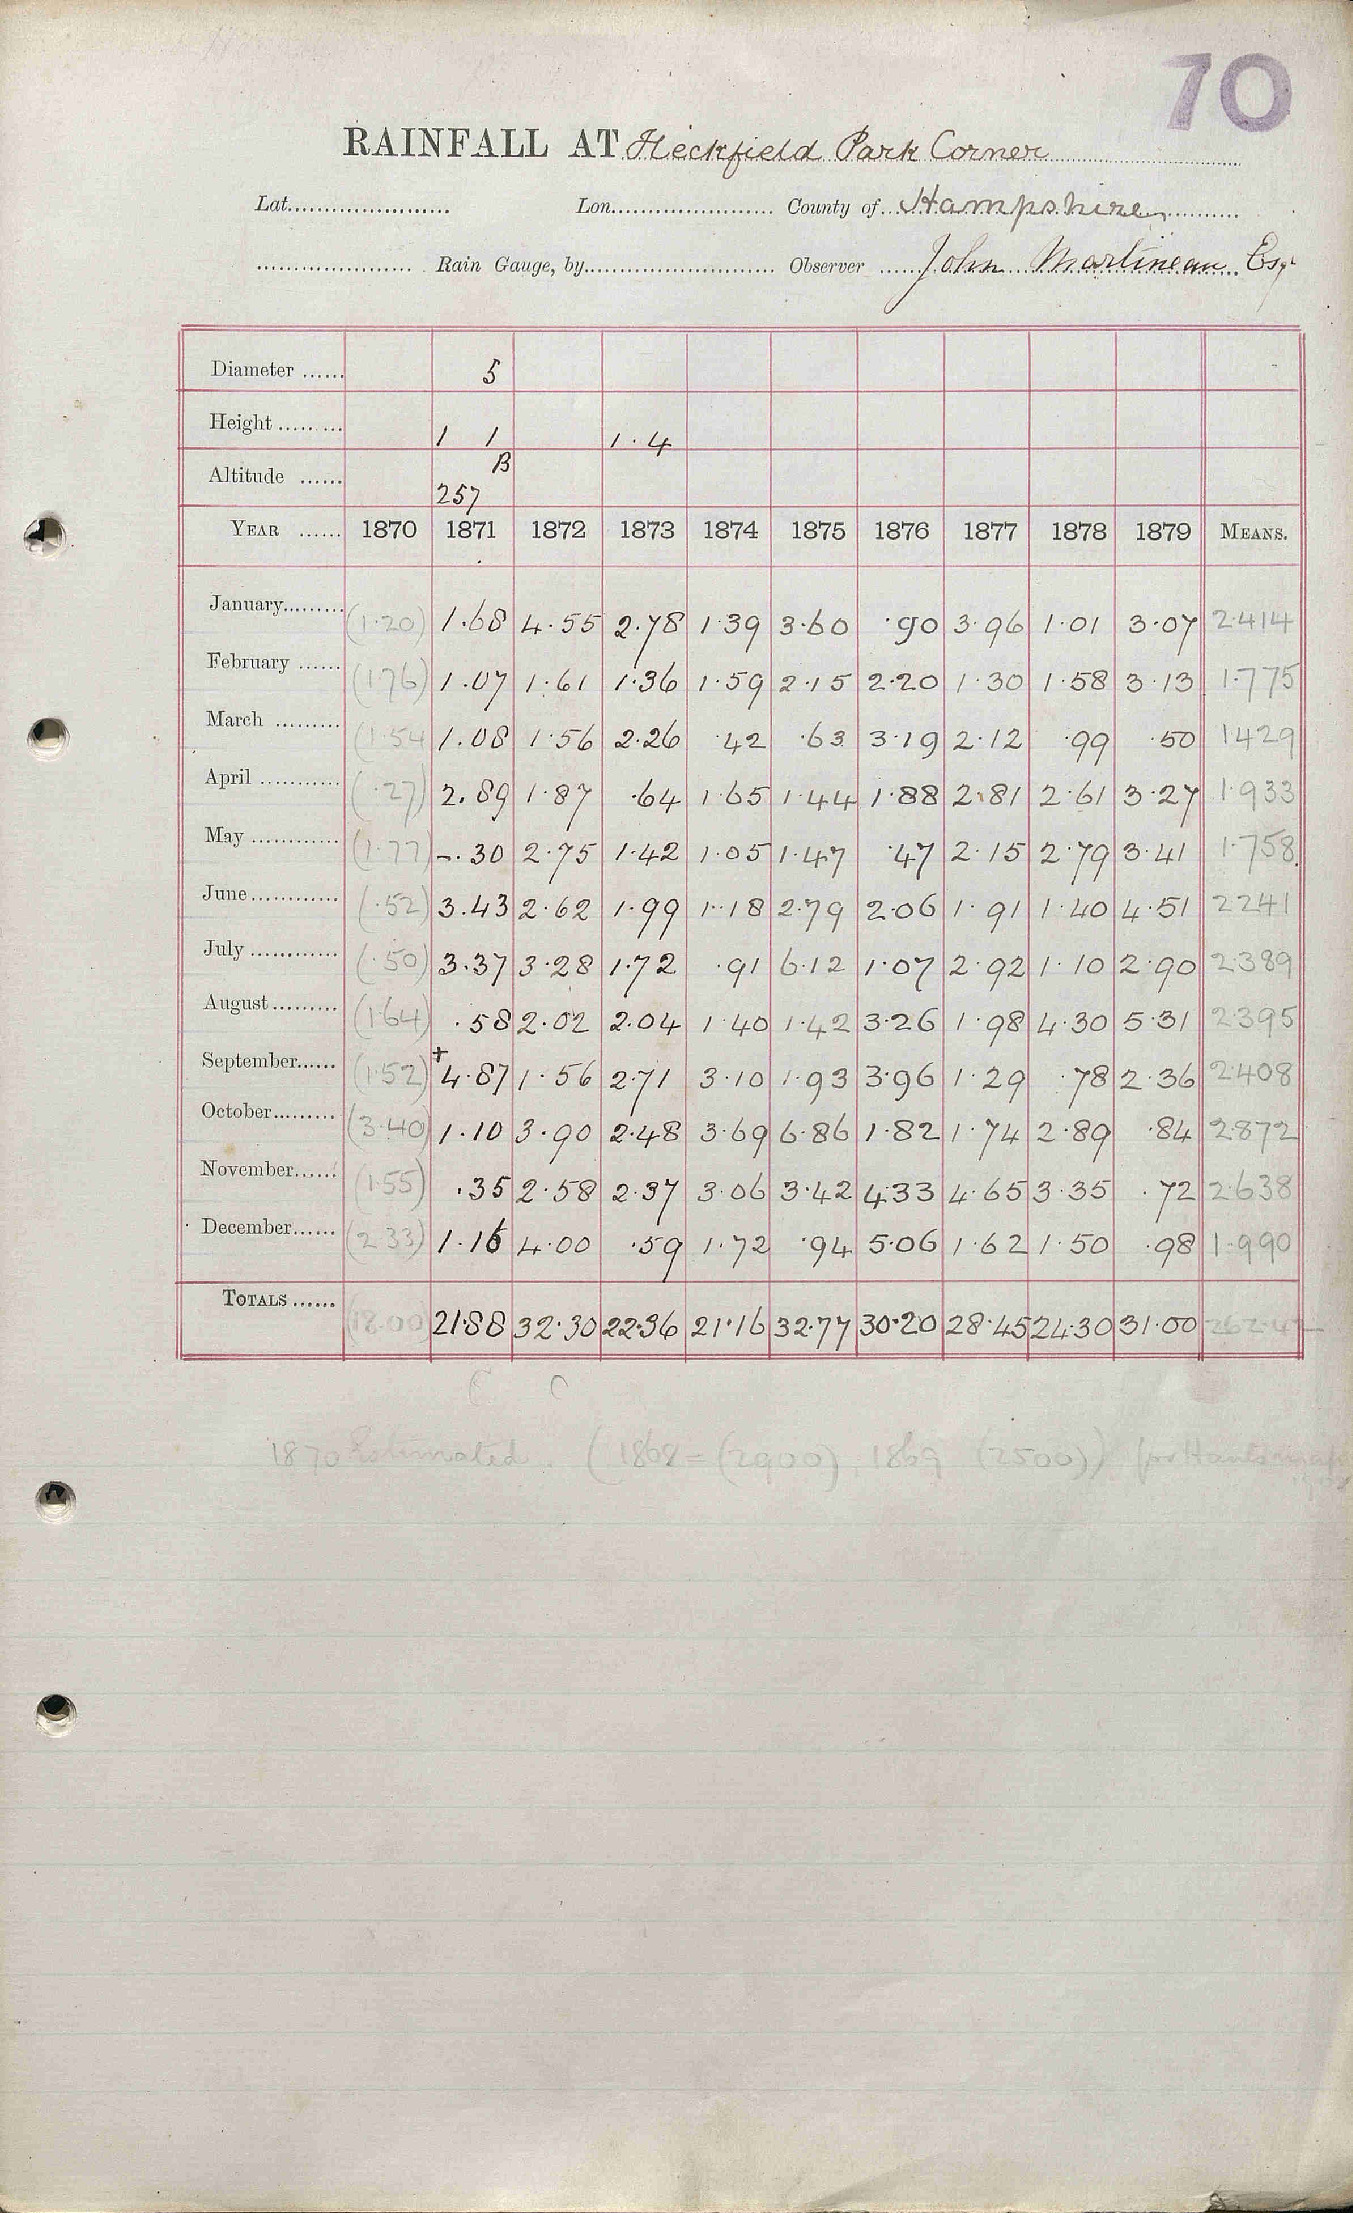 70
RAINFALL AT Heckfield Park Corner
Lat. Lon. County of Hampshire
Rain Gauge, by Observer John Martineau Esqr
Diameter 5
Height 1 1 1.4
Altitude B 257
YEAR 1870 1871 1872 1873 1874 1875 1876 1877 1878 1879 MEANS.
January (1.20) 1.68 4.55 2.78 1.39 3.60 .90 3.96 1.01 3.07 2.414
February (1.76) 1.07 1.61 1.36 1.59 2.15 2.20 1.30 1.58 3.13 1.775
March (1.54 1.08 1.56 2.26 .42 .63 3.19 2.12 .99 .50 1429
April (.27) 2.89 1.87 .64 1.65 1.44 1.88 2.81 2.61 3.27 1.933
May (1.77) -.30 2.75 1.42 1.05 1.47 .47 2.15 2.79 3.41 1.758
June (.52) 3.43 2.62 1.99 1.18 2.79 2.06 1.91 1.40 4.51 2241
July (.50) 3.37 3.28 1.72 .91 6.12 1.07 2.92 1.10 2.90 2.389
August (1.64) .58 2.02 2.04 1.40 1.42 3.26 1.98 4.30 5.31 2.395
September (1.52) + 4.87 1.56 2.71 3.10 1.93 3.96 1.29 .78 2.36 2.408
October (3.40) 1.10 3.90 2.48 3.69 6.86 1.82 1.74 2.89 .84 2.872
November (1.55) .35 2.58 2.37 3.06 3.42 4.33 4.65 3.35 .72 2.638
December (2.33) 1.16 4.00 .59 1.72 .94 5.06 1.62 1.50 .98 1.990
TOTALS (18.00) 21.88 32.30 22.36 21.16 32.77 30.20 28.45 24.30 31.00 262.42
C C
1870 Estimated. (1868 = (2900), 1869 (2500)) for Hants map